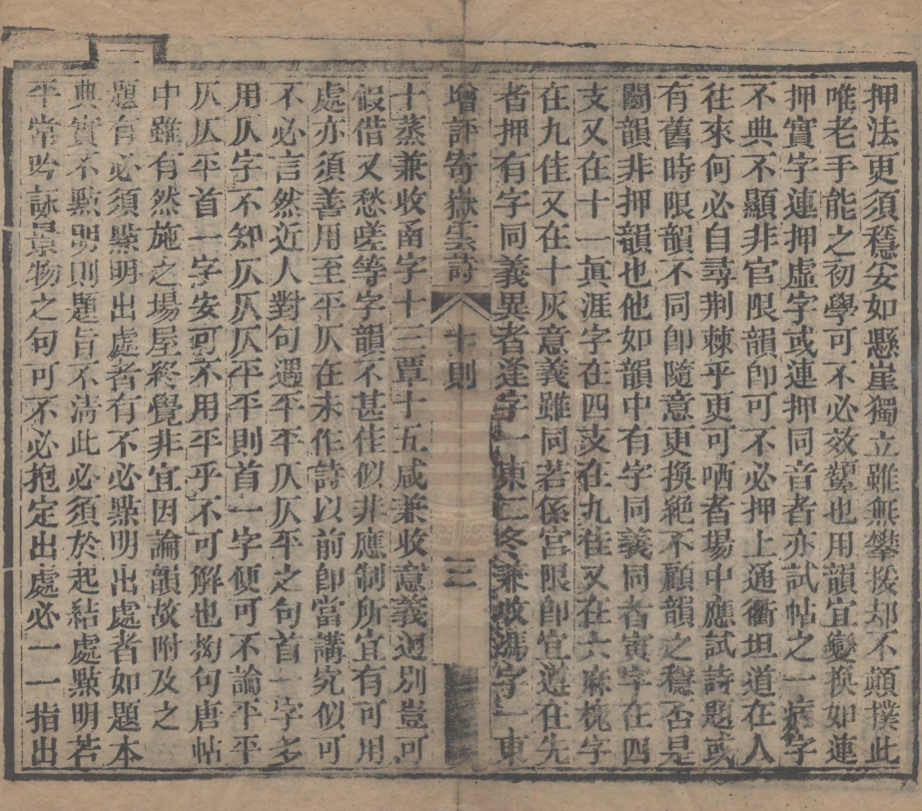 押法更須穩妥如懸崖獨立雖無攀援却不顛撲此
唯老手能之初學可不必效顰也用韻宜變換如連
押實字連押虛字或連押同音者亦試帖之一病字
不典不顯非官限韻卽可不必押上通衢坦道在人
往來何必自尋荆棘乎更可哂者場中應試詩題或
有舊時限韻不同卽隨意更換絶不顧韻之穩否是
鬬韻非押韻也他如韻中有字同義同者寅字在四
支又在十一眞涯字在四支在九佳又在六麻枕字
在九佳又在十灰意義雖同若係官限卽宜遵在先
者押有字同義異者逢字一東二冬兼收馮字一東
增評寄嶽雲詩 十則 三
十蒸兼收函字十三覃十五咸兼收意義迥別豈可
假借又愁嗟等字韻不甚佳似非應制所宜有可用
處亦須善用至平仄在未作詩以前卽當講究似可
不必言然近人對句遇平平仄仄平之句首一字多
用仄字不知仄仄仄平平則首一字便可不論平平
仄仄平首一字安可不用平乎不可解也拗句唐帖
中雖有然施之場屋終覺非宜因論韻故附及之
題有必須點明出處者有不必點明出處者如題本
典實不點明則題旨不清此必須於起結處點明若
平常吟詠景物之句可不必抱定出處必一一指出